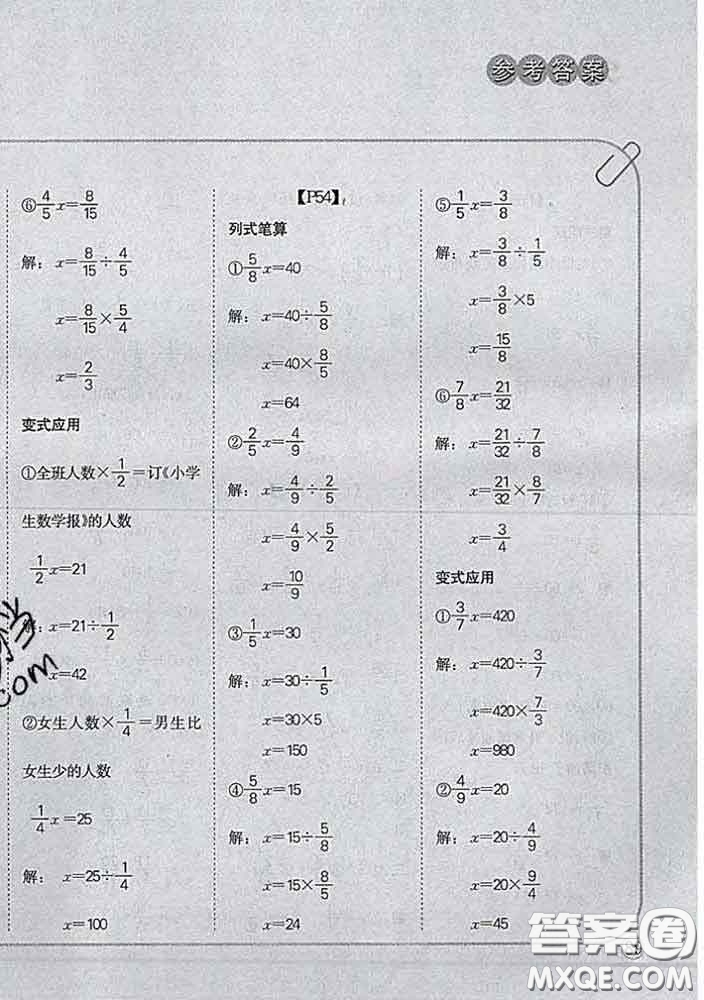 参考答案
⑥4/5x=8/15
解：x=8/15÷4/5
x=8/15×5/4
x=2/3
变式应用
①全班人数×1/2=订《小学
生数学报》的人数
1/2x=21
解：x=21÷1/2
x=42
②女生人数×1/4=男生比
女生少的人数
1/4x=25
解：x=25÷1/4
x=100
【P54】
列式笔算
①5/8x=40
解：x=40÷5/8
x=40×8/5
x=64
②2/5x=4/9
解：x=4/9÷2/5
x=4/9×5/2
x=10/9
③1/5x=30
解：x=30÷1/5
x=30×5
x=150
④5/8x=15
解：x=15÷5/8
x=15×8/5
x=24
⑤1/5x=3/8
解：x=3/8÷1/5
x=3/8×5
x=15/8
⑥7/8x=21/32
解：x=21/32÷7/8
x=21/32×8/7
x=3/4
变式应用
①3/7x=420
解：x=420÷3/7
x=420×7/3
x=980
②4/9x=20
解：x=20÷4/9
x=20×9/4
x=45
答案圈
MXQE.COM
com